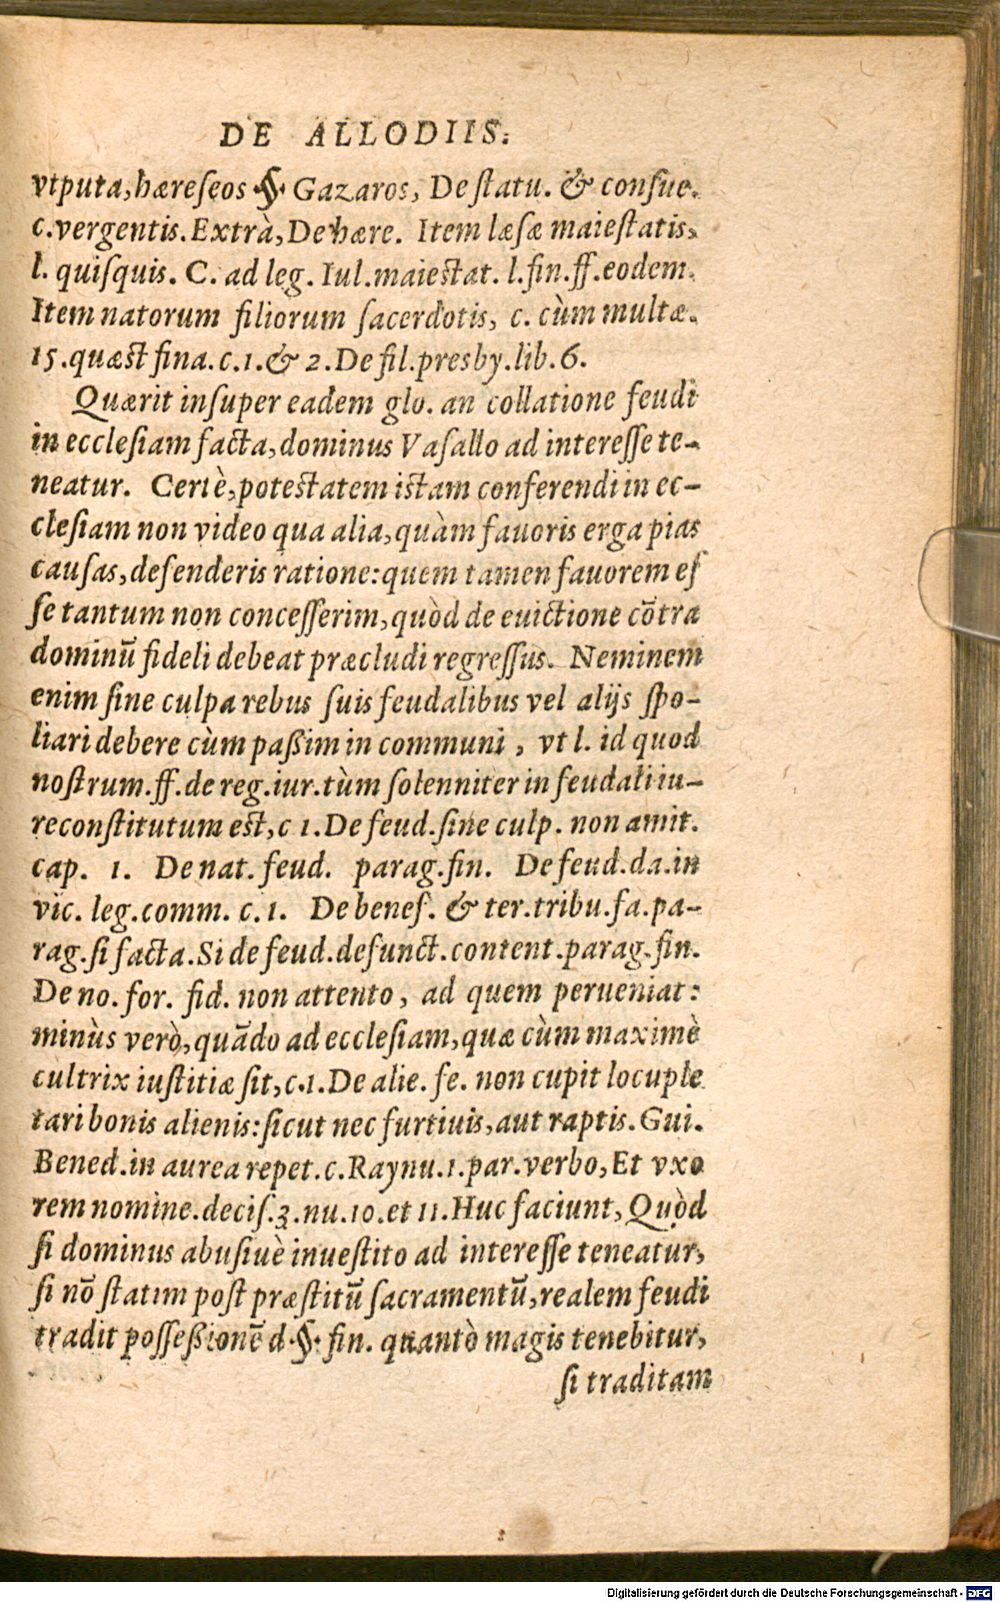 DE ALLODIIS.
vtputa, hæreſeos §. Gazaros, De ſtatu. & conſue.
c. vergentis. Extrà, De hære. Item læſæ maieſtatis,
l. quiſquis. C. ad leg. Iul. maieſtat. l. fin. ff. eodem.
Item natorum filiorum ſacerdotis, c. cùm multæ.
15. quæſt fina. c. 1. & 2. De fil. presby. lib. 6.
Quærit inſuper eadem glo. an collatione feudi
in eccleſiam facta, dominus Vaſallo ad intereſſe te-
neatur. Certè, poteſtatem iſtam conferendi in ec-
cleſiam non video qua alia, quàm fauoris erga pias
cauſas, defenderis ratione: quem tamen fauorem eſ
ſe tantum non conceſſerim, quòd de euictione cōtra
dominū fideli debeat præcludi regreſſus. Neminem
enim ſine culpa rebus ſuis feudalibus vel alijs ſpo-
liari debere cùm paßim in communi, vt l. id quod
noſtrum. ff. de reg. iur. tùm ſolenniter in feudali iu-
re conſtitutum eſt, c 1. De feud. ſine culp. non amit.
cap. 1. De nat. feud. parag. fin. De feud. da. in
vic. leg. comm. c. 1. De benef. & ter. tribu. fa. pa-
rag. ſi facta. Si de feud. defunct. content. parag. fin.
De no. for. fid. non attento, ad quem perueniat:
minùs verò, quādo ad eccleſiam, quæ cùm maximè
cultrix iuſtitiæ ſit, c. 1. De alie. fe. non cupit locuple
tari bonis alienis: ſicut nec furtiuis, aut raptis. Gui.
Bened. in aurea repet. c. Raynu. 1. par. verbo, Et vxo
rem nomine. deciſ. 3. nu. 10. et 11. Huc faciunt, Quòd
ſi dominus abuſiuè inueſtito ad intereſſe teneatur,
ſi nō ſtatim poſt præſtitū ſacramentū, realem feudi
tradit poſſeßionē d. §. fin. quantò magis tenebitur,
ſi traditam
Digitalisierung gefördert durch die Deutsche Forschungsgemeinschaft - DFG